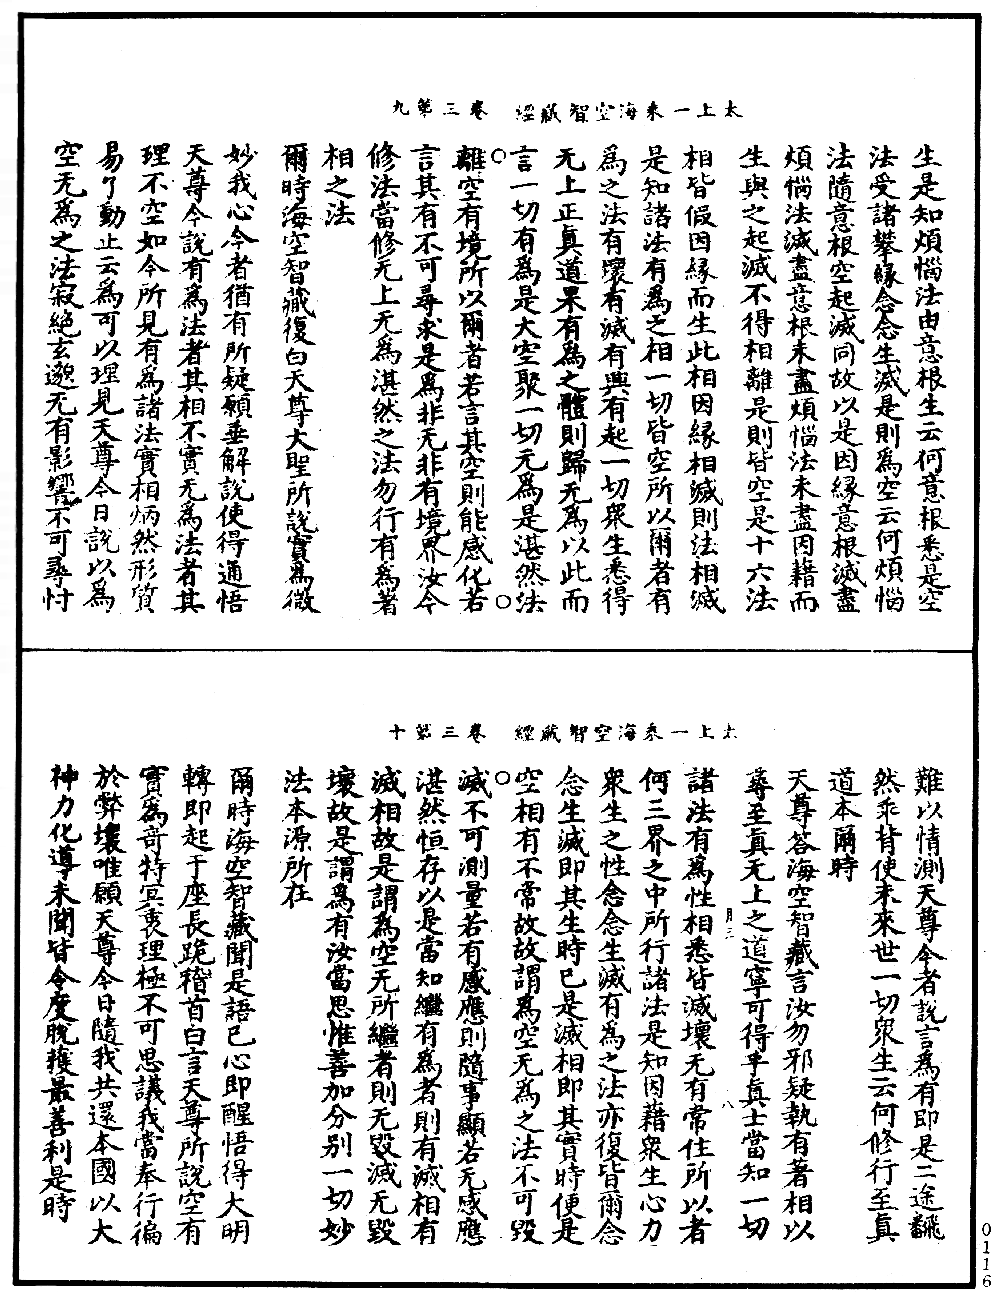 太上一乗海空智藏經　卷三第九
生是知煩惱法由意根生云何意根悉是空
法受諸攀緣念念生滅是則為空云何煩惱
法隨意根空起滅同故以是因緣意根滅盡
煩惱法滅盡意根未盡煩惱法未盡因藉而
生與之起滅不得相離是則皆空是十六法
相皆假因緣而生此相因緣相滅則法相滅
是知諸法有為之相一切皆空所以爾者有
為之法有壞有滅有興有起一切衆生悉得
无上正真道果有為之體則歸无為以此而
言一切有為是大空聚一切无為是湛然法
離空有境所以爾者若言其空則能感化若
言其有不可尋求是為非无非有境界汝今
修法當修无上无為湛然之法勿行有為著
相之法
爾時海空智藏復白天尊大聖所說實為微
妙我心今者猶有所疑願垂解說使得通悟
天尊今說有為法者其相不實无為法者其
理不空如今所見有為諸法實相炳然形質
易了動止云為可以理見天尊今日說以為
空无為之法寂絕玄邈无有影響不可尋忖
太上一乗海空智藏經　卷三第十
難以情測天尊今者說言為有即是二途飜
然乖背使未來世一切衆生云何修行至真
道本爾時
天尊答海空智藏言汝勿邪疑執有著相以
尋至真无上之道寧可得乎真士當知一切
諸法有為性相悉皆滅壞无有常住所以者
何三界之中所行諸法是知因藉衆生心力
衆生之性念念生滅有為之法亦復皆爾念
念生滅即其生時已是滅相即其實時便是
空相有不常故故謂為空无為之法不可毀
滅不可測量若有感應則隨事顯若无感應
湛然恒存以是當知繼有為者則有滅相有
滅相故是謂為空无所繼者則无毀滅无毀
壞故是謂為有汝當思惟善加分別一切妙
法本源所在
爾時海空智藏聞是語已心即醒悟得大明
轉即起于座長跪稽首白言天尊所說空有
實為奇特冥衷理極不可思議我當奉行徧
於弊壞唯願天尊今日隨我共還本國以大
神力化導未聞皆令度脫獲最善利是時
0116